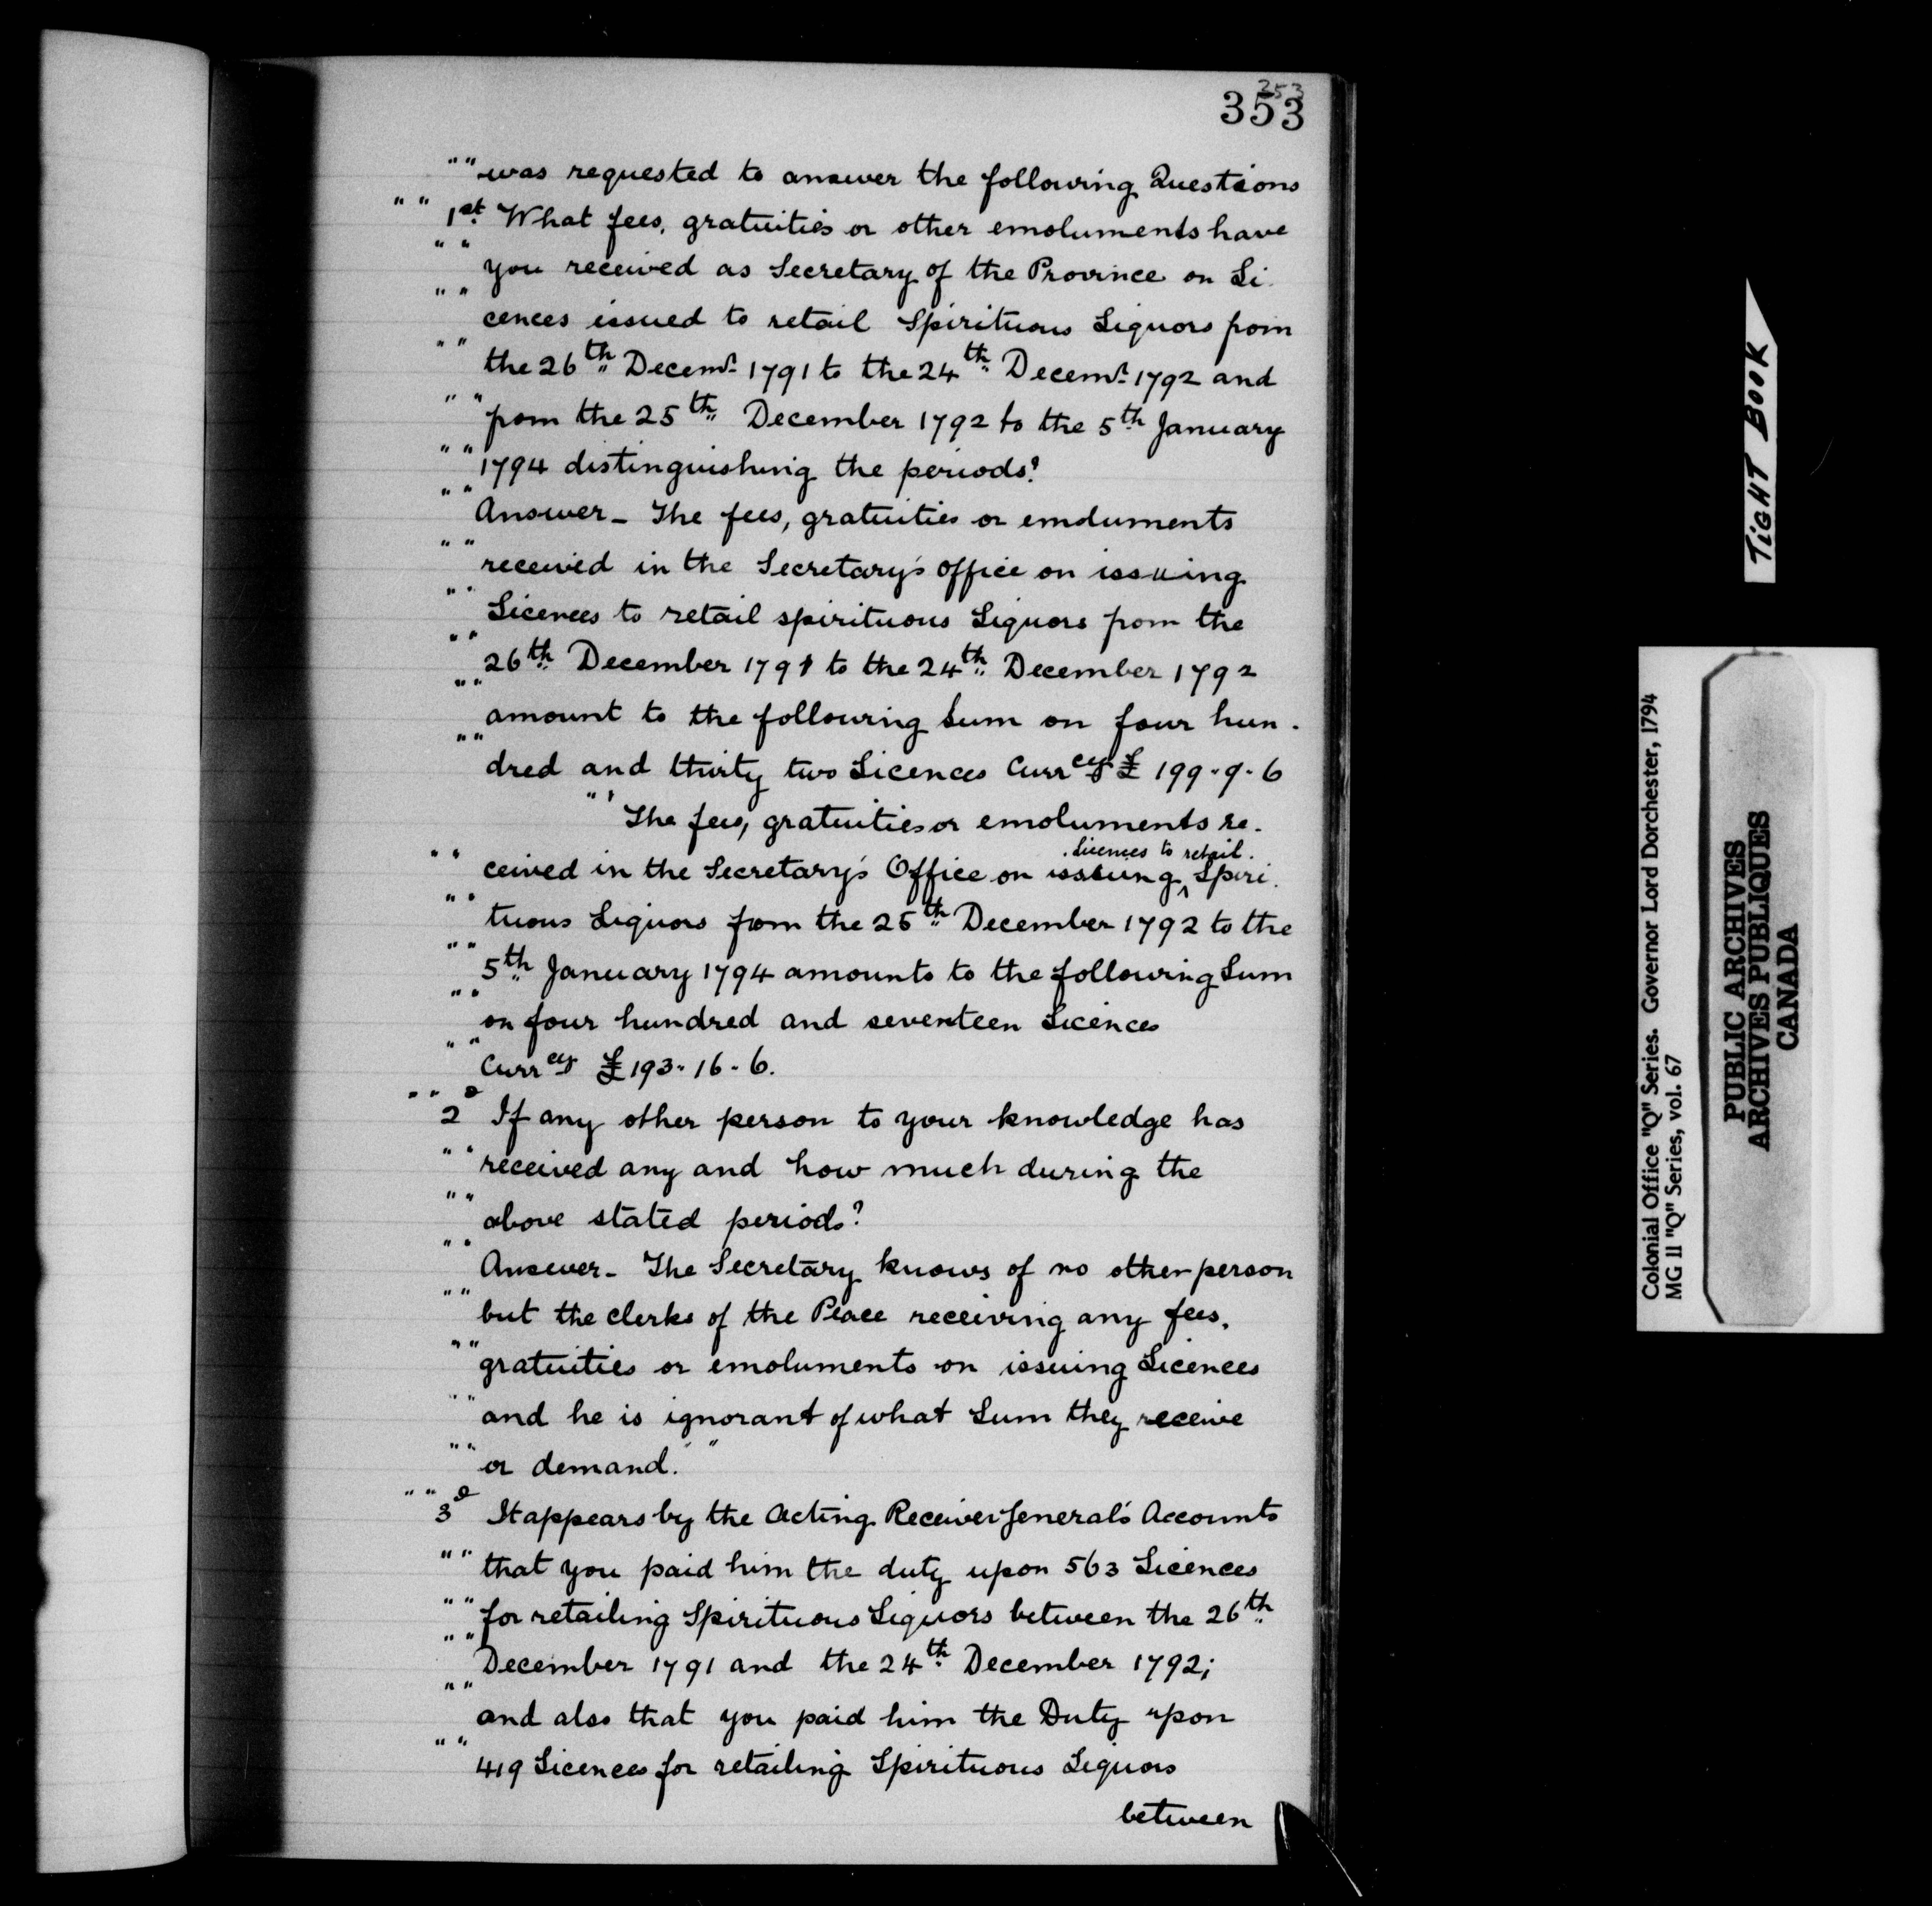 253
353
" " was requested to answer the following Questions
" " 1st What fees, gratuities or other emoluments have
" " you received as Secretary of the Province on Li-
" " cences issued to retail Spirituous Liquors from
" " the 26th Decemr 1791 to the 24th Decemr 1792 and
" " from the 25th December 1792 to the 5th January
" " 1794 distinguishing the periods?
" " Answer - The fees, gratuities or emoluments
" " received in the Secretary's office on issuing
" " Licences to retail spirituous Liquors from the
" " 26th December 1791 to the 24th December 1792
" " amount to the following Sum on four hun-
" " dred and thirty two Licences Currcy £ 199-9-6
" " The fees, gratuities or emoluments re-
" " ceived in the Secretary's Office on issuing ^ Licences to retail Spiri-
" " tuous Liquors from the 25th December 1792 to the
" " 5th January 1794 amounts to the following Sum
" " on four hundred and seventeen Licences
" " Currcy £193-16-6.
" " 2d If any other person to your knowledge has
" " received any and how much during the
" " above stated periods?
" " Answer - The Secretary knows of no other person
" " but the Clerks of the Peace receiving any fees,
" " gratuities or emoluments on issuing Licences
" " and he is ignorant of what Sum they receive
" " or demand." "
" " 3d It appears by the Acting Receiver General's Accounts
" " that you paid him the duty upon 563 Licences
" " for retailing Spirituous Liquors between the 26th
" " December 1791 and the 24th December 1792;
" " and also that you paid him the Duty upon
" " 419 Licences for retailing Spirituous Liquors
between
TIGHT BOOK
Colonial Office "Q" Series. Governor Lord Dorchester, 1794
MG 11 "Q" Series, vol. 67
PUBLIC ARCHIVES
ARCHIVES PUBLIQUES
CANADA